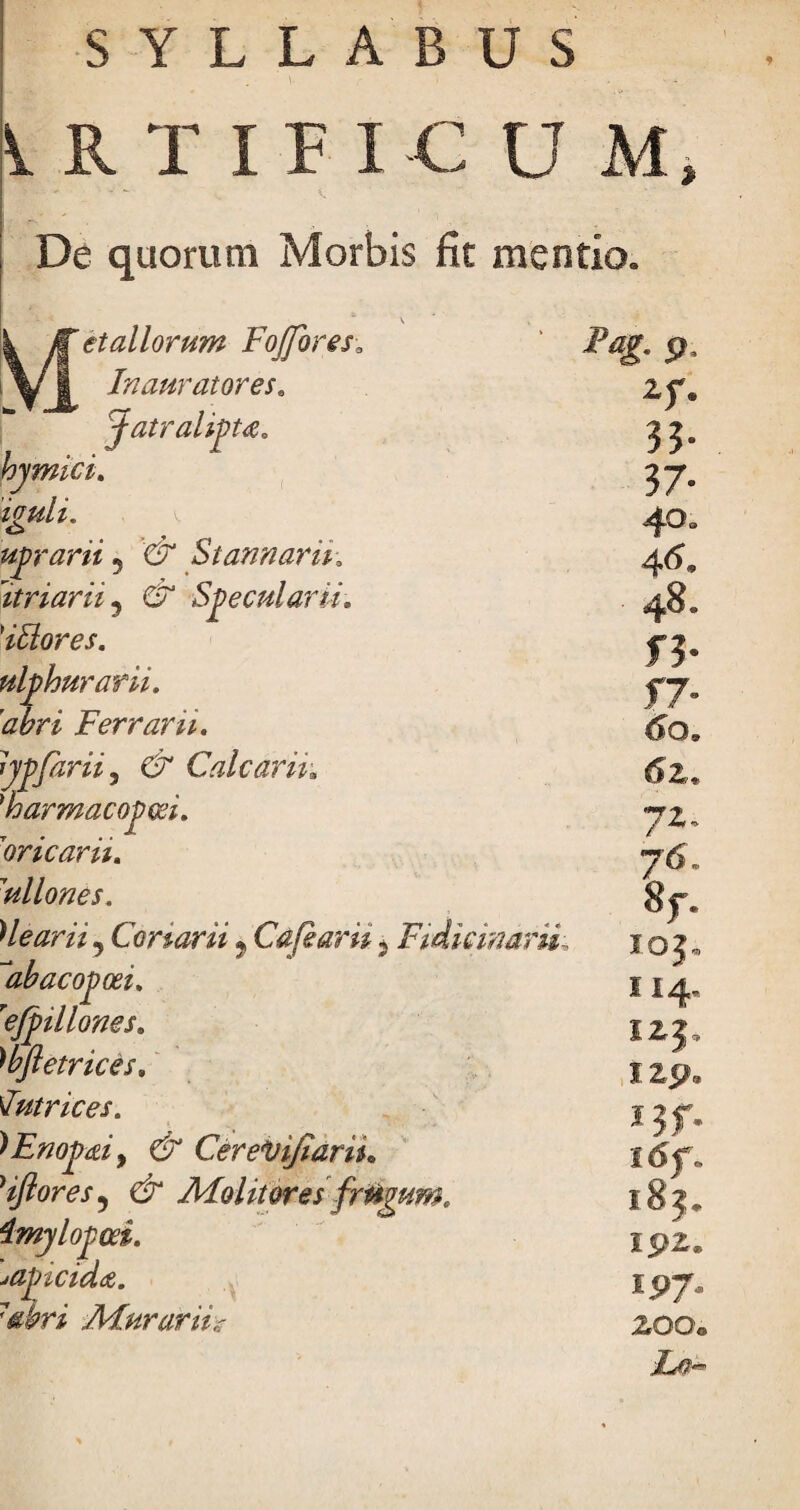 SYLLABUS
ARTIFICUM,
De quorum Morbis fit mentio.
Metallorum Foſſores. Pag. 9.
Inauratores. 25.
Jatraliptæ. 33.
hymici. 37.
iguli. 40.
uprarii, & Stannarii. 46.
itriarii, & Specularii. 48.
ictores. 53.
ulphurarii. 57.
abri Ferrarii. 60.
ypſarii, & Calcarii. 62.
harmacopœi. 72.
oricarii. 76.
ullones. 85.
learii, Coriarii, Caſearii, Fidicinarii. 103.
abacopœi. 114.
eſpillones. 123.
bſtetrices. 129.
Nutrices. 135.
Enopæi, & Cereviſiarii. 165.
iſtores, & Molitores frugum. 183.
Amylopœi. 192.
apicidæ. 197.
abri Murarii. 200.
Lo-